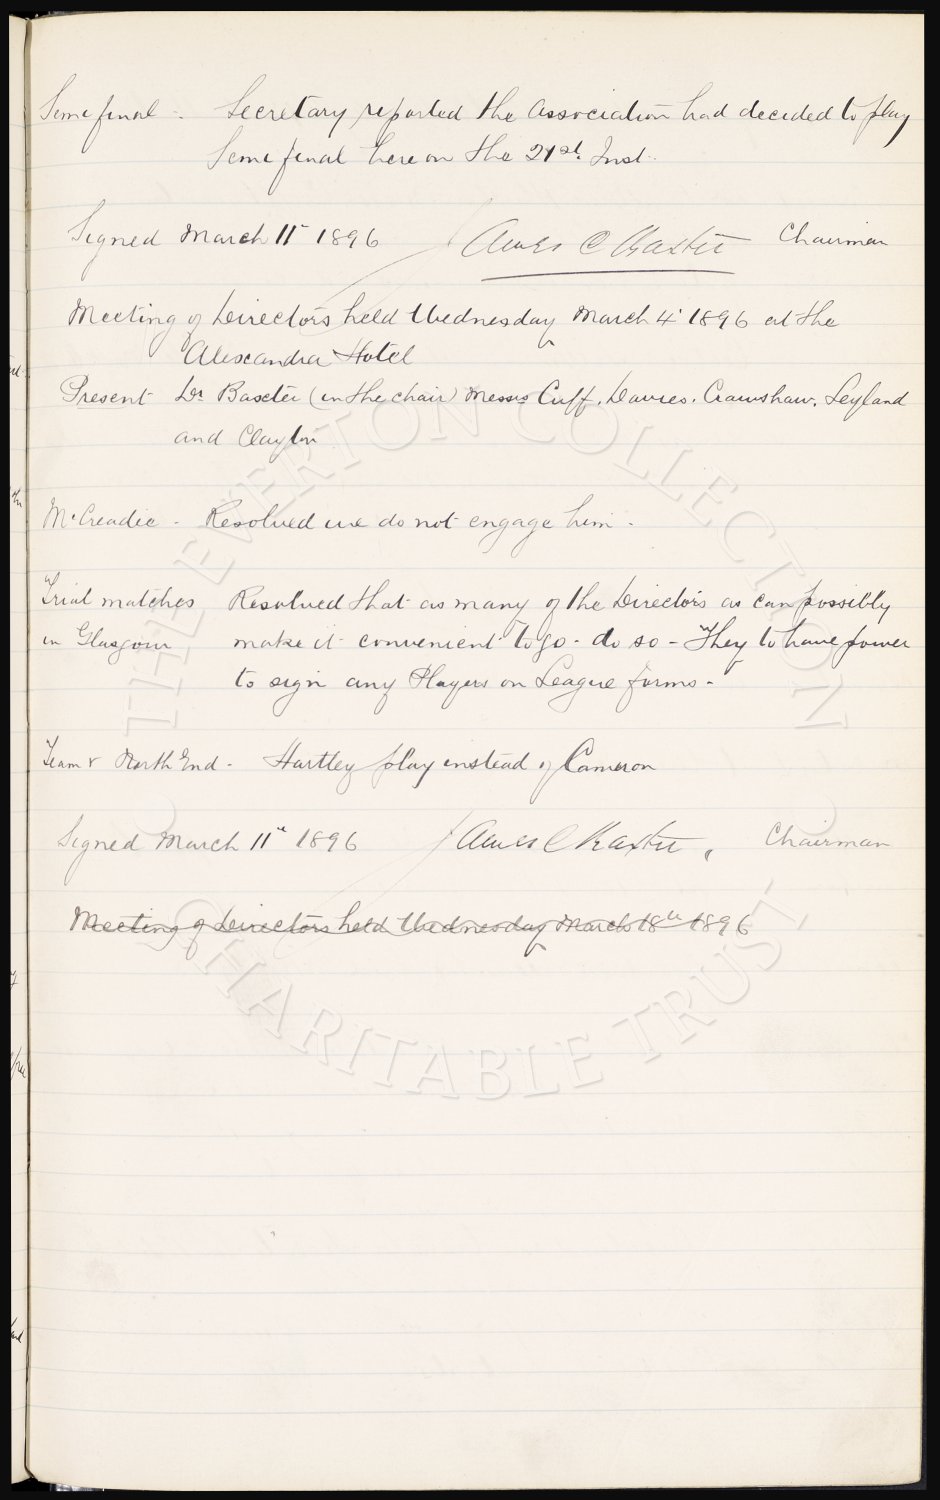 Semi final - Secretary reported the Association had decided to play
Semi final here on the 21st Inst.
Signed March 11th 1896 James C Baxter Chairman
Meeting of Directors held Wednesday March 4th 1896 at the
Alexandra Hotel
Present Dr Baxter (in the chair) Messrs Cuff, Davies, Crawshaw, Leyland
and Clayton
McCreadie - Resolved we do not engage him -
Trial matches Resolved that as many of the Directors as can possibly
in Glasgow make it convenient to go - do so - They to have power
to sign any Players on League forms -
Team v North End - Hartley play instead of Cameron
Signed March 11th 1896 James C Baxter, Chairman
Meeting of Directors held Wednesday March 18th 1896
THE EVERTON COLLECTION
CHARITABLE TRUST